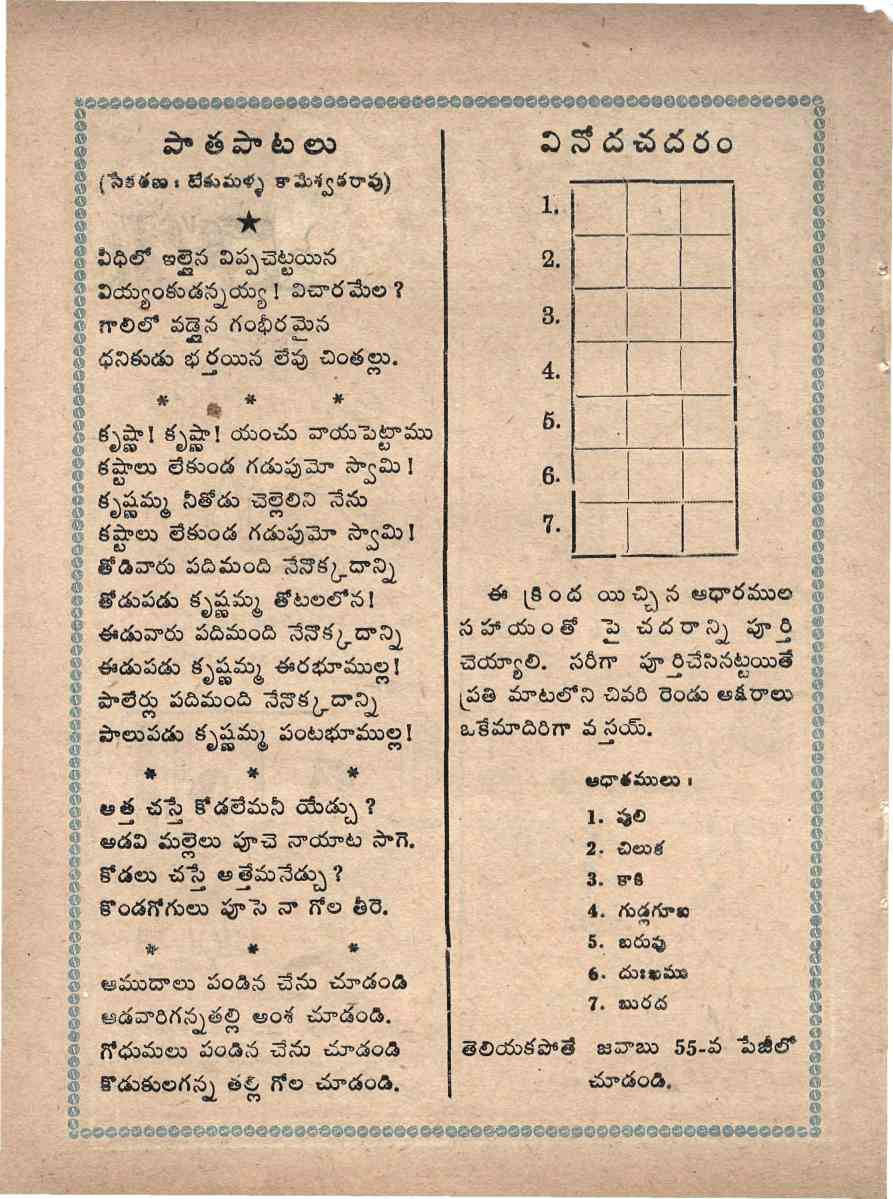 పాతపాటలు
(సేకరణ : టేకుమళ్ళ కామేశ్వరరావు)
వీధిలో ఇల్లైన విప్పచెట్టయిన
వియ్యంకుడన్నయ్య ! విచారమేల ?
గాలిలో వడ్లైన గంభీరమైన
ధనికుడు భర్తయిన లేవు చింతల్లు.
* * *
కృష్ణా ! కృష్ణా ! యంచు వాయపెట్టాము
కష్టాలు లేకుండ గడుపుమో స్వామి !
కృష్ణమ్మ నీతోడు చెల్లెలిని నేను
కష్టాలు లేకుండ గడుపుమో స్వామి !
తోడివారు పదిమంది నేనొక్కదాన్ని
తోడుపడు కృష్ణమ్మ తోటలలోన !
ఈడువారు పదిమంది నేనొక్కదాన్ని
ఈడుపడు కృష్ణమ్మ ఈరభూముల్ల !
పాలేర్లు పదిమంది నేనొక్కదాన్ని
పాలుపడు కృష్ణమ్మ పంటభూముల్ల !
* * *
అత్త చస్తే కోడలేమనీ యేడ్చు ?
అడవి మల్లెలు పూచె నాయాట సాగె.
కోడలు చస్తే అత్తేమనేడ్చు ?
కొండగోగులు పూసె నా గోల తీరె.
* * *
ఆముదాలు పండిన చేను చూడండి
ఆడవారిగన్నతల్లి అంశ చూడండి.
గోధుమలు పండిన చేను చూడండి
కొడుకులగన్న తల్లి గోల చూడండి.
వినోదచదరం
1.
2.
3.
4.
5.
6.
7.
ఈ క్రింద యిచ్చిన ఆధారముల
సహాయంతో పై చదరాన్ని పూర్తి
చెయ్యాలి. సరీగా పూర్తిచేసినట్టయితే
ప్రతి మాటలోని చివరి రెండు అక్షరాలు
ఒకేమాదిరిగా వస్తయ్.
ఆధారములు :
1. పులి
2. చిలుక
3. కాకి
4. గుడ్లగూబ
5. బరువు
6. దుఃఖము
7. బురద
తెలియకపోతే జవాబు 55-వ పేజీలో
చూడండి.